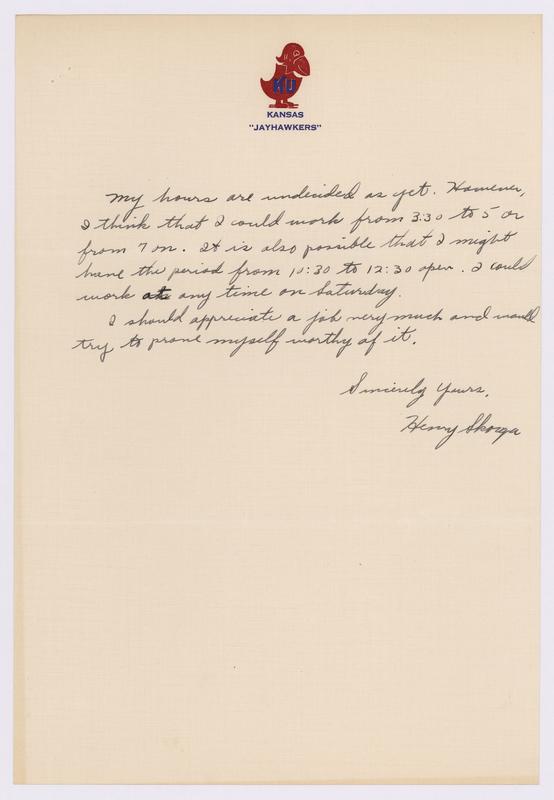 KU
KANSAS
"JAYHAWKERS"
My hours are undecided as yet. However,
I think that I could work from 3:30 to 5 or
from 7 on. It is also possible that I might
have the period from 10:30 to 12:30 open. I could
work any time on Saturday.
I should appreciate a job very much and would
try to prove myself worthy of it.
Sincerely Yours,
Henry